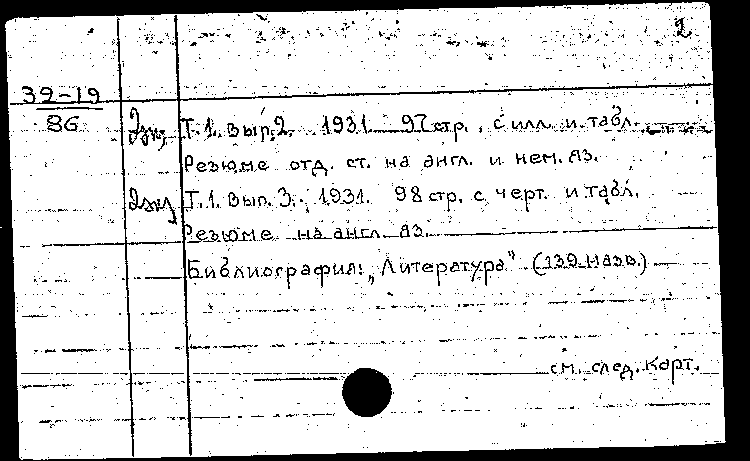 2
39-19
86
2экз. Т.1. Вып.2. 1931. 97 стр., с илл. и табл.
Резюме отд. ст. на англ. и нем. яз.
2экз. Т.1. Вып. 3. 1931. 98 стр. с черт. и табл.
Резюме на англ. яз.
Библиография: „Литература" (139 назв.)
см. след. карт.